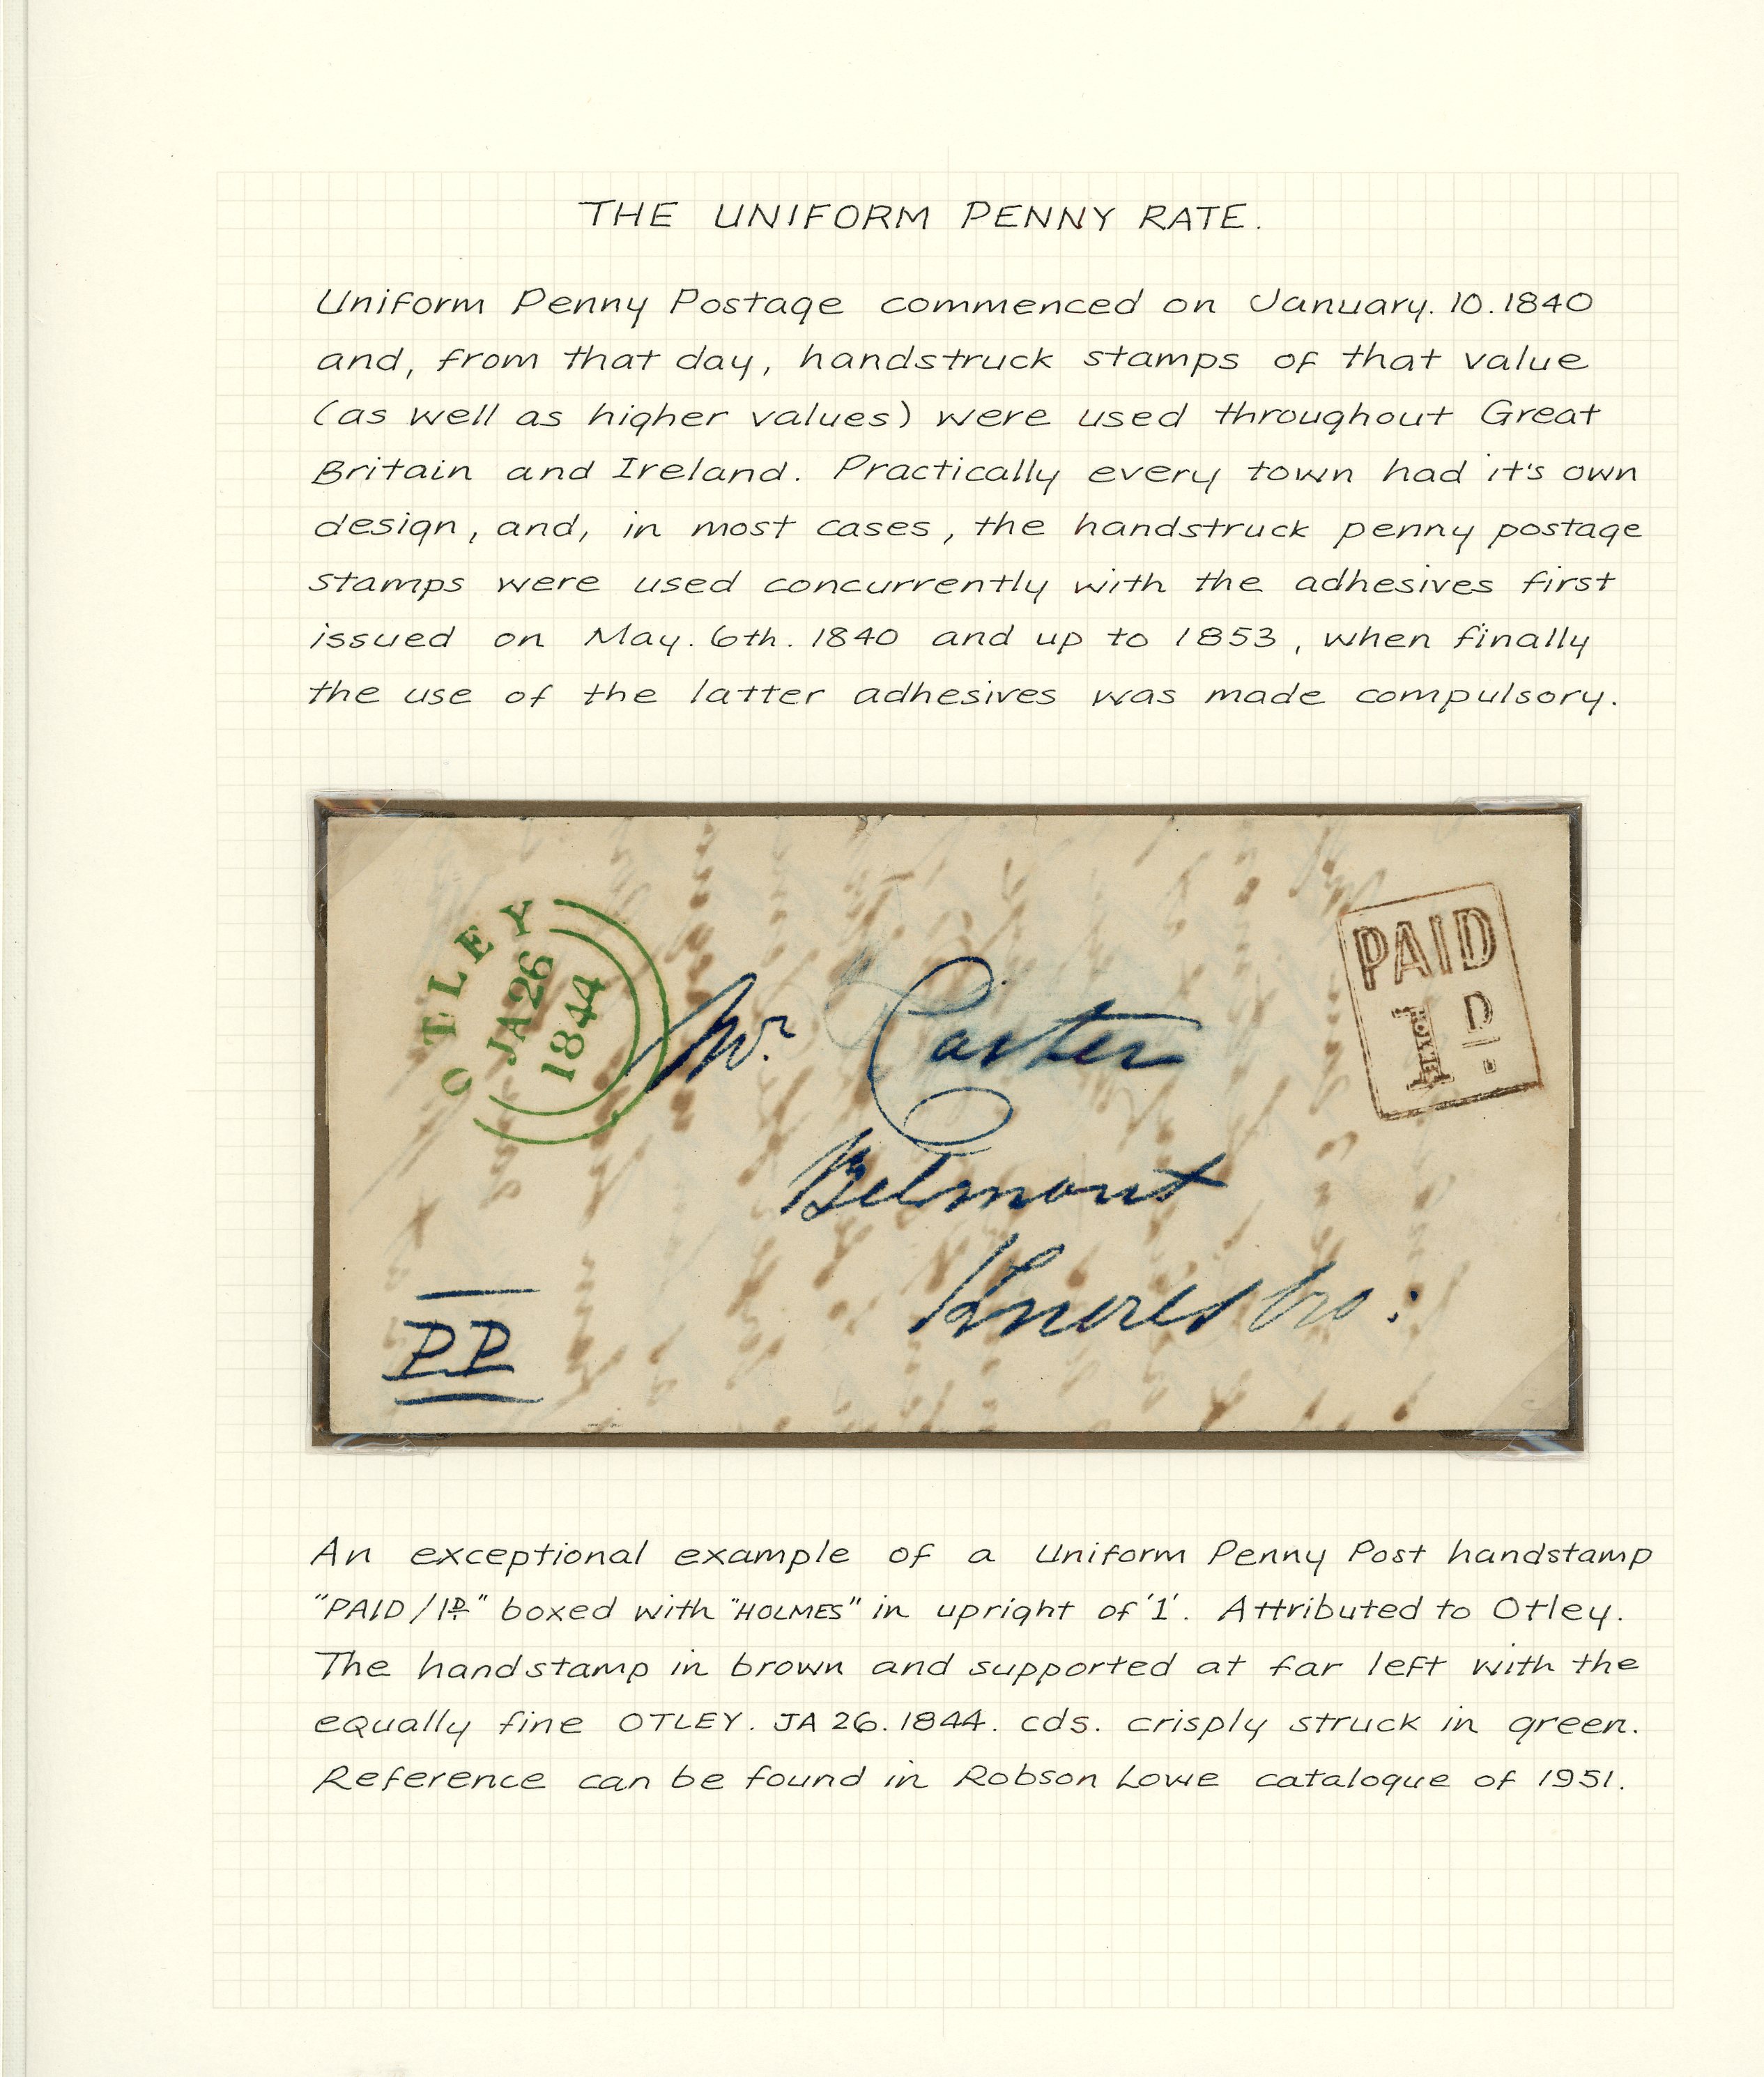 THE UNIFORM PENNY RATE.
Uniform Penny Postage commenced on January. 10. 1840
and, from that day, handstruck stamps of that value
(as well as higher values) were used throughout Great
Britain and Ireland. Practically every town had it's own
design, and, in most cases, the handstruck penny postage
stamps were used concurrently with the adhesives first
issued on May. 6th. 1840 and up to 1853, when finally
the use of the latter adhesives was made compulsory.
OTLEY
JA 26
1844
PAID
1D.
Mr. Carter
Belmont
Knaresbro:
PP
An exceptional example of a Uniform Penny Post handstamp
"PAID/1D." boxed with "HOLMES" in upright of '1'. Attributed to Otley.
The handstamp in brown and supported at far left with the
equally fine OTLEY. JA 26. 1844. cds. crisply struck in green.
Reference can be found in Robson Lowe catalogue of 1951.